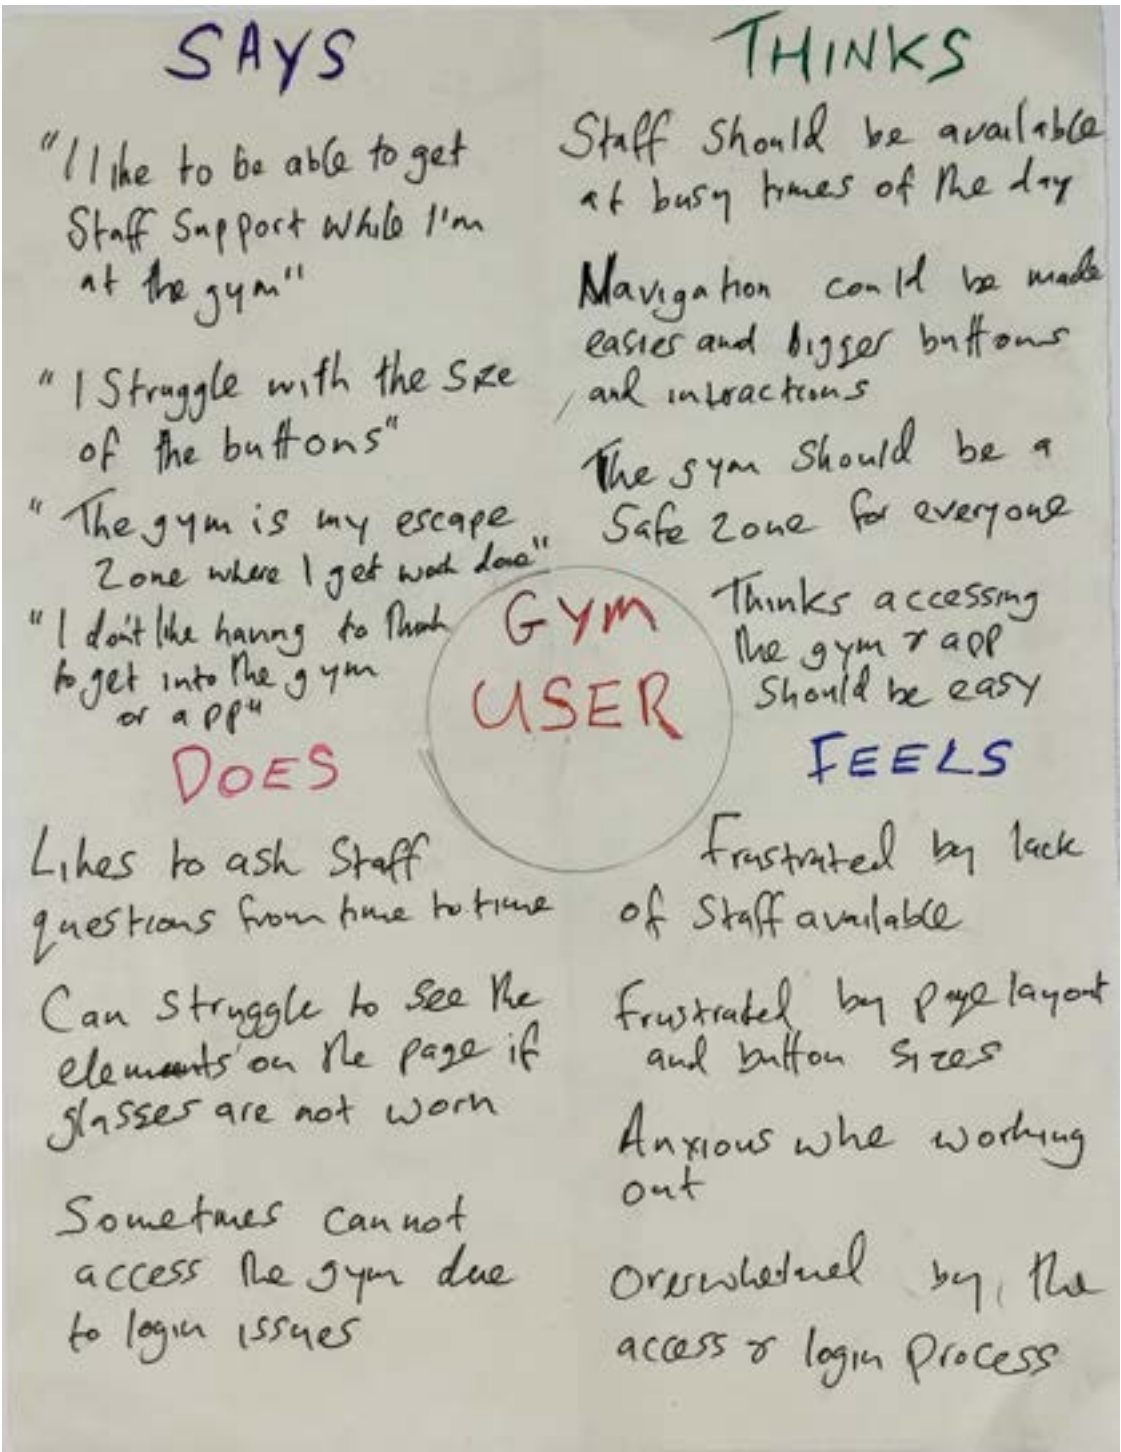 SAYS
"I like to be able to get
Staff Support while I'm
at the gym"
"I Struggle with the Size
of the buttons"
"The gym is my escape
Zone where I get work done"
"I don't like having to think
to get into the gym
or app"
THINKS
Staff Should be available
at busy times of the day
Navigation could be made
easier and bigger buttons
and interactions
The gym Should be a
Safe Zone for everyone
Thinks accessing
the gym & app
Should be easy
GYM
USER
DOES
Likes to ask Staff
questions from time to time
Can struggle to see the
elements on the page if
glasses are not worn
Sometimes cannot
access the gym due
to login issues
FEELS
Frustrated by lack
of Staff available
Frustrated by page layout
and button sizes
Anxious whe working
out
Overwhelmed by the
access & login process